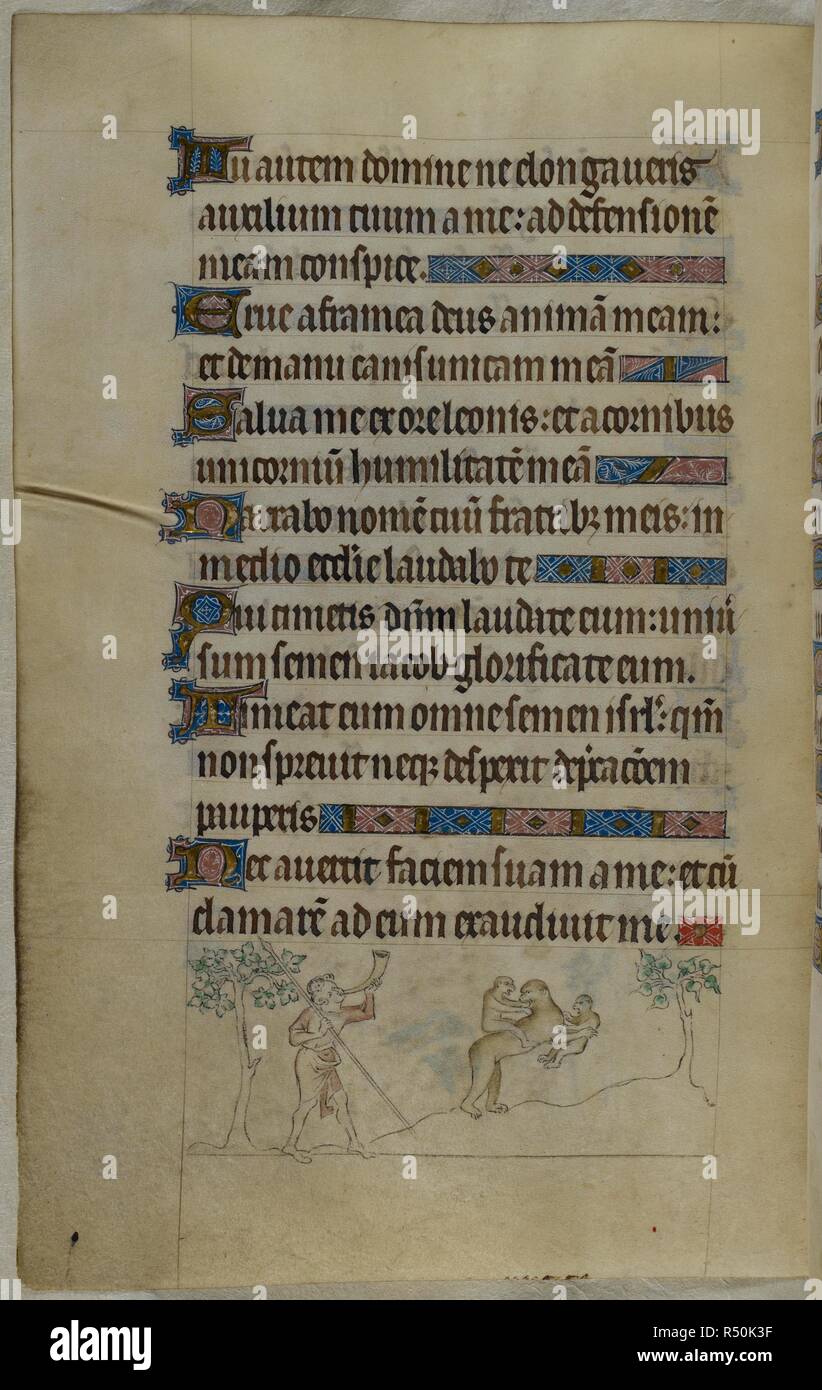 Tu autem domine ne elongaueris
auxilium tuum a me: ad defensionē
meam conspice.
Erue a framea deus animā meam:
et de manu canis unicam meā
Salua me ex ore leonis: et a cornibus
unicorniū humilitatē meā
Narrabo nomē tuū fratribꝫ meis: in
medio ecclie laudabo te
Qui timetis dn̄m laudate eum: uniu̾
sum semen iacob glorificate eum.
Timeat eum omne semen isrl̾: qm̄
non spreuit neqꝫ despexit dep̾cacōem
pauperis
Nec auertit faciem suam a me: et cū
clamarē ad eum exaudiuit me.
a alamy stock photo
alamy
Image ID: R50K3F
www.alamy.com